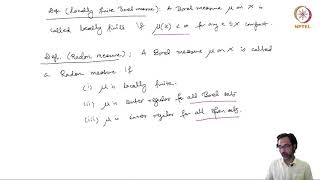 Def. (Locally finite Borel measure): A Borel measure μ on X is
called locally finite if μ(K) < ∞ for any K ⊆ X compact.
Def. (Radon measure): A Borel measure μ on X is called
a Radon measure if
(i) μ is locally finite.
(ii) μ is outer regular for all Borel sets
(iii) μ is inner regular for all open sets.
NPTEL